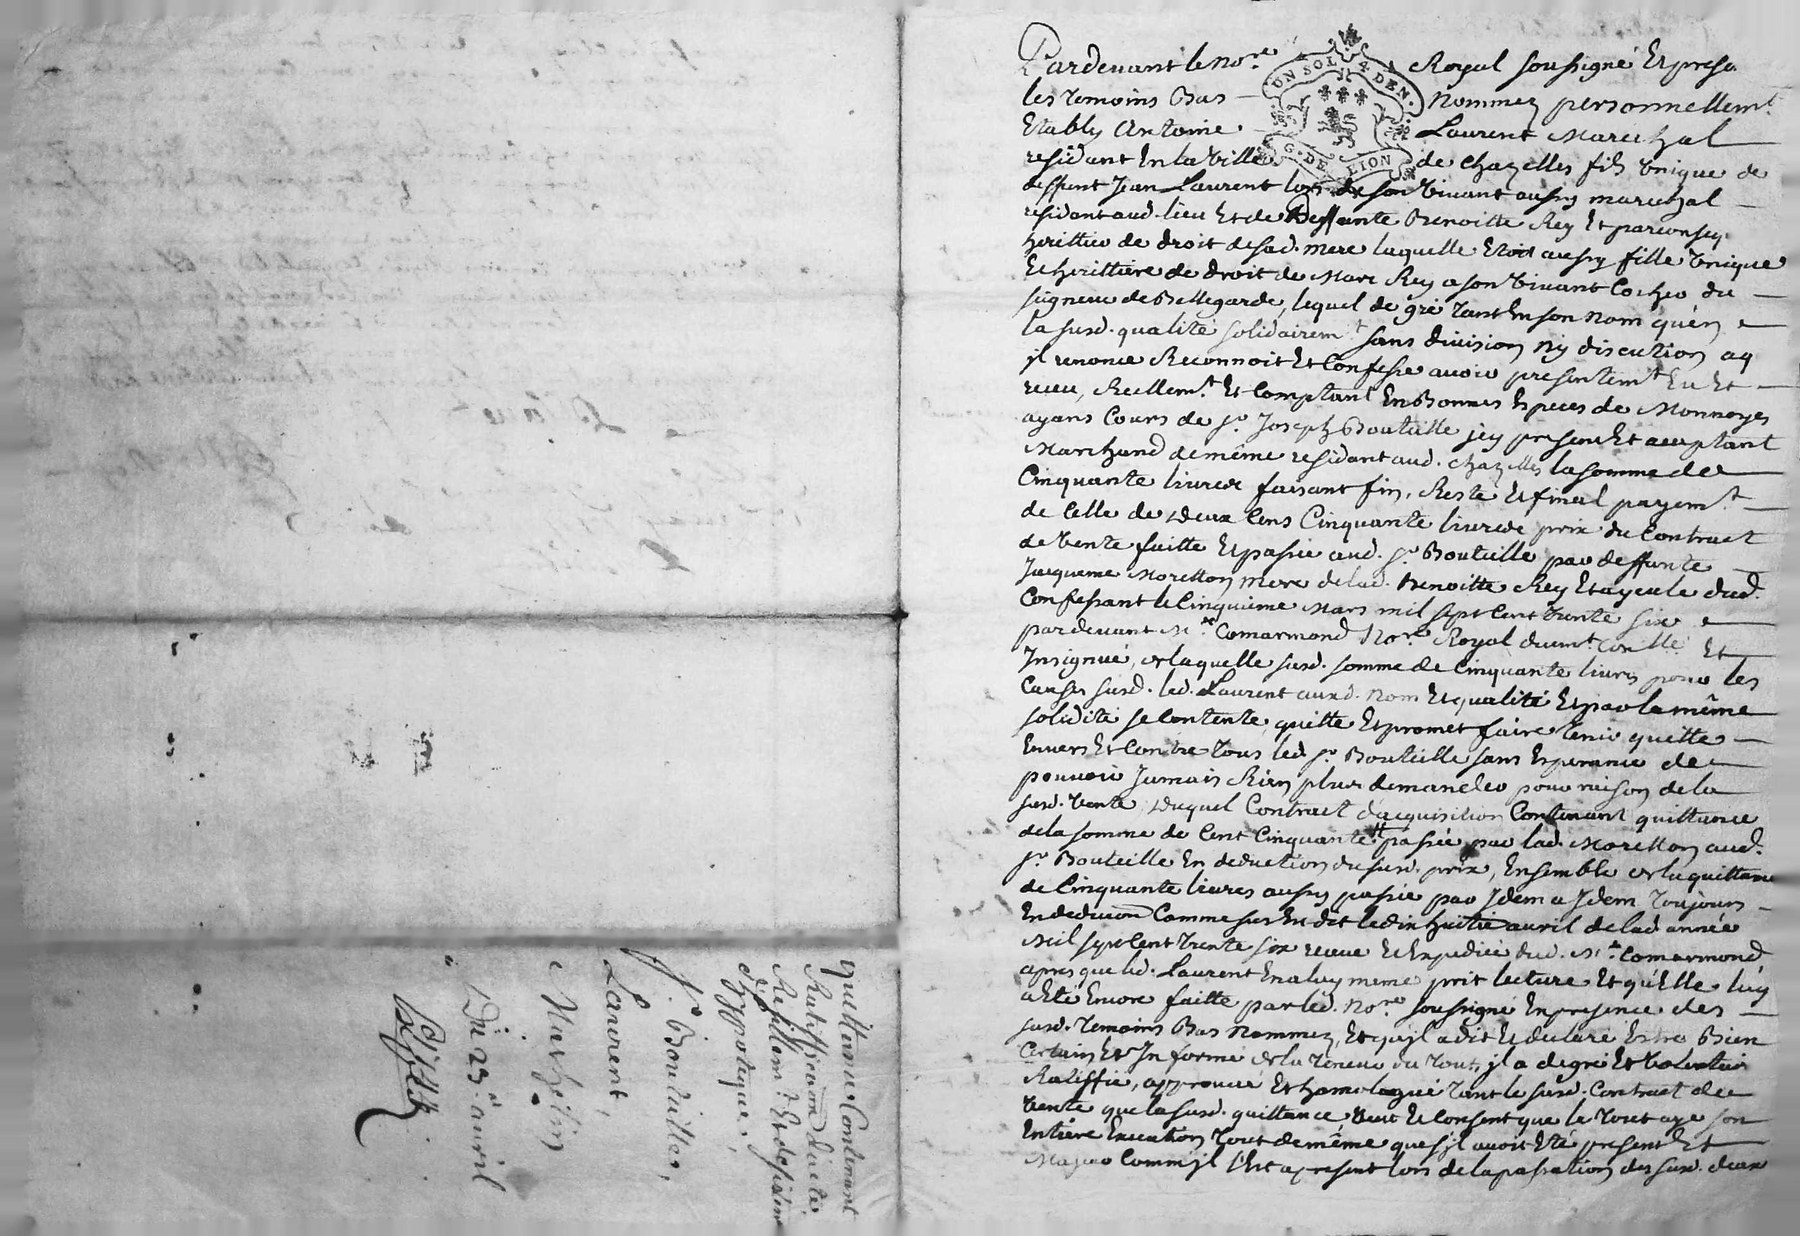 Pardevant le nore Royal soussigné Et prese.
les temoins Bas Nommez personnellemt
Etably Antoine Laurent Marechal
residant En la Ville de chazelles fils Unique de
deffunt Jean Laurent lors de son Vivant aussy marechal
residant aud. lieu Et de Deffunte Benoitte Rey Et par conseq.
heritier de droit de sad. mere laquelle Etoit aussy fille Unique
Et heritiere de droit de Marc Rey a son Vivant Cocher du
seigneur de Bellegarde, lequel de gré tant En son Nom qu'en
la susd. qualité solidairemt sans division Ny discution aq
jl renonce Reconnoit Et Confesse avoir presentemt Eu Et
receu, Reellemt Et Comptant En Bonnes Especes de Monnoyes
ayans Cours de sr. Joseph Bouteille jcy present Et acceptant
Marchand de même residant aud. chazelles la somme de
Cinquante livres faisant fin, Reste Et final payemt
de Celle de deux Cens Cinquante livres prix du Contract
de Vente faitte Et passée aud. sr Bouteille par deffunte
Jacqueme Moretton mere de lad. Benoitte Rey Et ayeule dud.
Confessant le Cinquième Mars mil sept Cent trente six
pardevant Me Comarmond Nore Royal duemt Conllé Et
Insignué, de laquelle susd. somme de Cinquante livres pour les
Causes susd. led. Laurent aux d. nom Et qualité Et par la même
solidité se Contente, quitte Et promet faire tenir quitte
Envers Et Contre tous led sr. Bouteille sans Esperance de
pouvoir Jamais Rien plus demander pour raison de la
susd. Vente, duquel Contract d'acquisition Contenant quittance
de la somme de Cent Cinquante tt passée par lad. Moretton aud.
sr. Bouteille En deduction du susd. prix, Ensemble de la quittance
de Cinquante livres aussy passée par Jdem a Jdem Toujours
En deduction Comme sus Est dit le dix huitie avril de lad année
Mil sept Cent trente six receue Et Expediée dud. Me Comarmond
apres que led. Laurent En a luy meme prit lecture Et qu'Elle luy
a Eté Encore faitte par led. Nore soussigné En presence des
susd. temoins Bas Nommez, Et qu'jl a dit Et declaré Estre Bien
Certain Et Informé de la teneur du tout, jl a de gré Et Volontier
Ratiffié, approuvé Et homologué tant le susd. Contract de
Vente que la susd. quittance Veut Et Consent que le tout aye son
Entiere Execution tout de même que s'jl avoit Eté present Et
Majeur Comm'jl l'Est a present lors de la passation des susd. deux
quittance Contenant
Ratiffication d'acte,
Resillemt Et desistem
d'hypoteque,
sr. Bouteille,
Laurent,
Du 23e avril
UN SOL 4 DEN.
G. DE LION